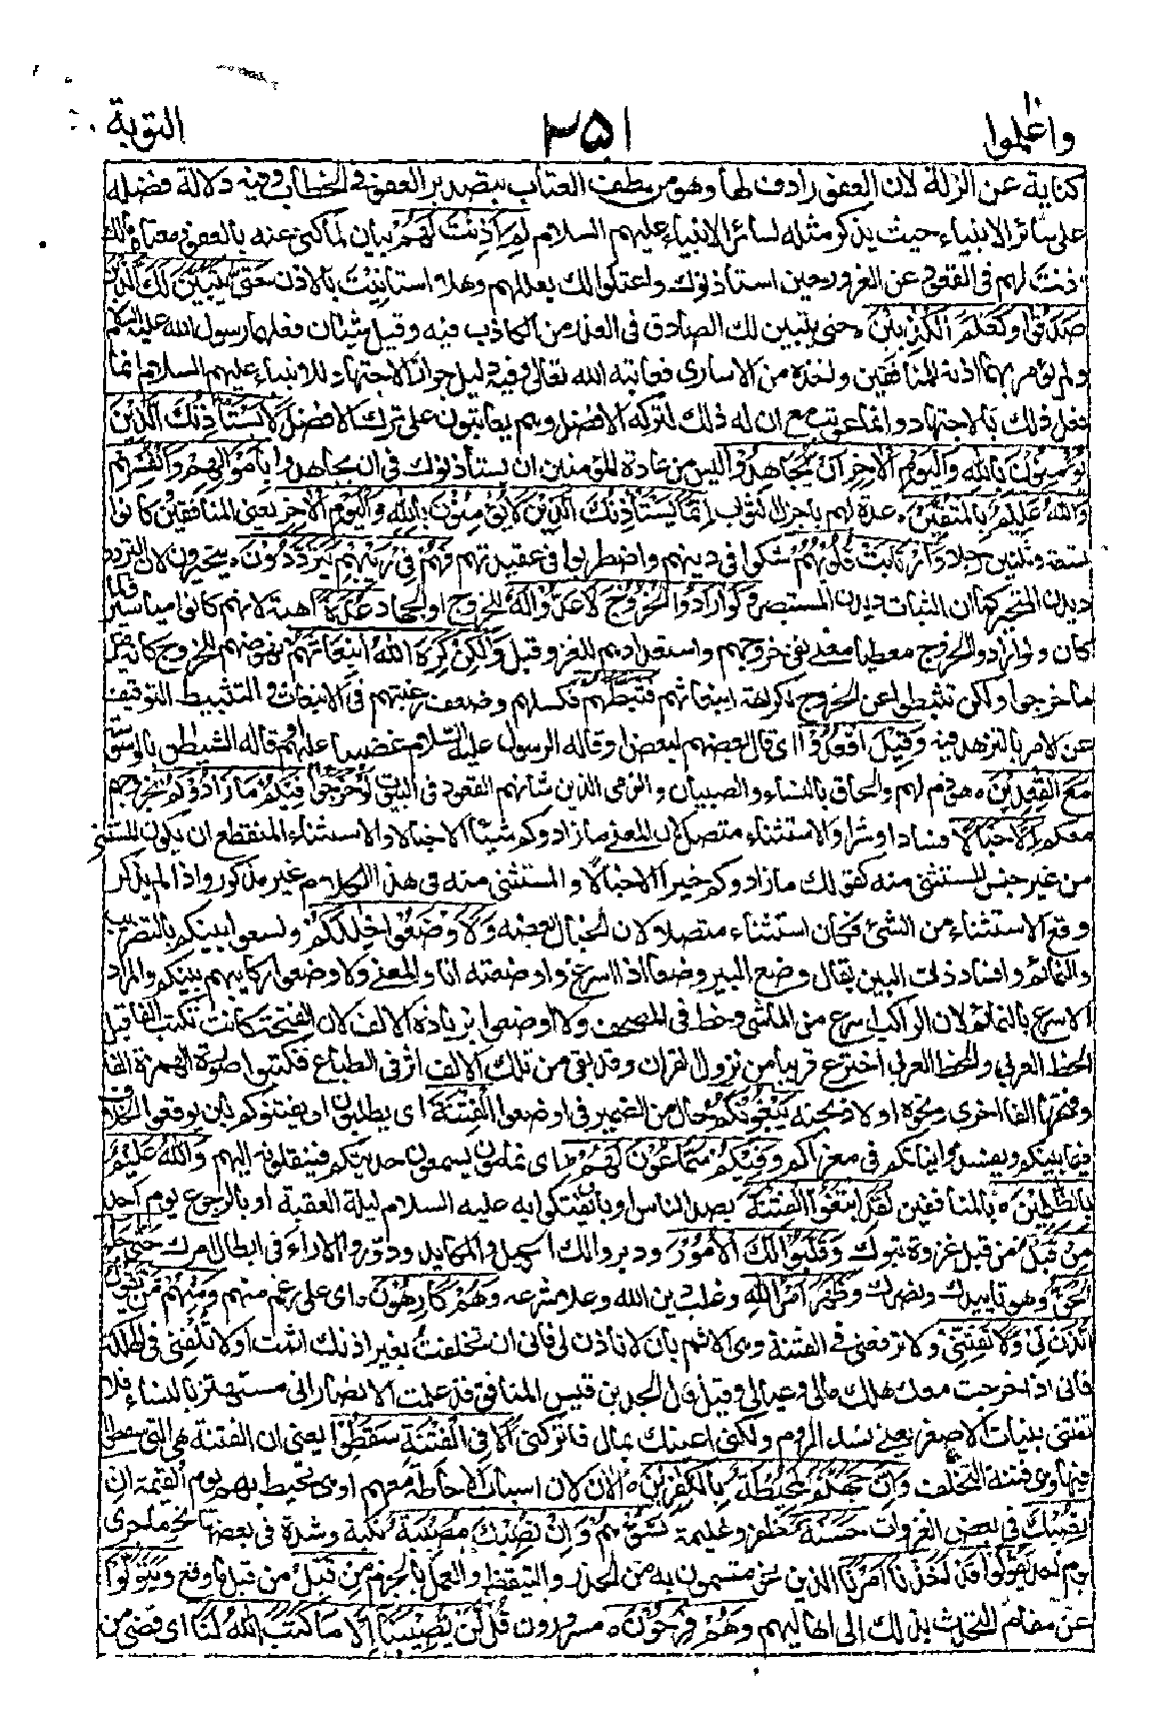 واعلموا ٣٥١ التوبة
كناية عن الزلة لان العفو رادف لها وهو من لطف العتاب بتصدير العفو فى الخطاب وفيه دلالة فضله
على سائر الانبياء حيث يذكر مثله لسائر الانبياء عليهم السلام لِمَ اَذِنْتَ لَهُمْ بيان لما كنى عنه بالعفو معناه مالك
اذنت لهم فى القعود عن الغزو حين استاذنوك واعتلوا لك بعللهم وهلا استانيت بالاذن حَتّٰى يَتَبَيَّنَ لَكَ الَّذِيْنَ
صَدَقُوْا وَتَعْلَمَ الْكٰذِبِيْنَ ○ حتى يتبين لك الصادق فى العذر من الكاذب فيه وقيل شيئان فعلهما رسول الله عليه السلام
ولم يؤمر بهما اذنه للمنافقين واخذه من الاسارى فعاتبه الله تعالى وفيه دليل جواز الاجتهاد للانبياء عليهم السلام انما
فعل ذلك بالاجتهاد وانما عوتب مع ان له ذلك لتركه الافضل وهم يعاتبون على ترك الافضل لَا يَسْتَاْذِنُكَ الَّذِيْنَ
يُؤْمِنُوْنَ بِاللّٰهِ وَالْيَوْمِ الْاٰخِرِ اَنْ يُّجَاهِدُوْا ليس من عادة المؤمنين ان يستاذنوك فى ان يجاهدوا بِاَمْوَالِهِمْ وَاَنْفُسِهِمْ
وَاللّٰهُ عَلِيْمٌ بِالْمُتَّقِيْنَ ○ عدة لهم باجزل الثواب اِنَّمَا يَسْتَاْذِنُكَ الَّذِيْنَ لَا يُؤْمِنُوْنَ بِاللّٰهِ وَالْيَوْمِ الْاٰخِرِ يعنى المنافقين كانوا
تسعة وثلثين رجلا وَارْتَابَتْ قُلُوْبُهُمْ شكوا فى دينهم واضطربوا فى عقيدتهم فَهُمْ فِيْ رَيْبِهِمْ يَتَرَدَّدُوْنَ ○ يتحيرون لان التردد
ديدن المتحير كما ان الثبات ديدن المستبصر وَلَوْ اَرَادُوا الْخُرُوْجَ لَاَعَدُّوْا لَهٗ للخروج او الجهاد عُدَّةً اهبة لانهم كانوا مياسير ولما
كان ولو ارادوا الخروج معطيا معنى نفى خروجهم واستعدادهم للغزو قيل وَلٰكِنْ كَرِهَ اللّٰهُ انْبِعَاثَهُمْ نهوضهم للخروج كانه قيل
ما خرجوا ولكن تثبطوا عن الخروج لكراهة انبعاثهم فَثَبَّطَهُمْ فكسلهم وضعف رغبتهم فى الانبعاث والتثبيط التوقيف
عن الامر بالتزهيد فيه وَقِيْلَ اقْعُدُوْا اى قال بعضهم لبعض او قاله الرسول عليه السلام غضبا عليهم او قاله الشيطن بالوسوسة
مَعَ الْقٰعِدِيْنَ ○ هو ذم لهم والحاق بالنساء والصبيان والزمنى الذين شانهم القعود فى البيوت لَوْ خَرَجُوْا فِيْكُمْ مَّا زَادُوْكُمْ بخروجهم
معكم اِلَّا خَبَالًا فسادا وشرا والاستثناء متصل لان المعنى ما زادوكم شيئا الا خبالا والاستثناء المنقطع ان يكون المستثنى
من غير جنس المستثنى منه كقولك ما زادوكم خيرا الا خبالا والمستثنى منه فى هذا الكلام غير مذكور واذا لم يذكر
وقع الاستثناء من الشئ فكان استثناء متصلا لان الخبال بعضه وَّلَا۟اَوْضَعُوْا خِلٰلَكُمْ ولسعوا بينكم بالتضريب
والنمائم وافساد ذات البين يقال وضع البعير وضعا اذا اسرع واوضعته انا والمعنى ولاوضعوا ركابهم بينكم والمراد
الاسراع بالنمائم لان الراكب اسرع من الماشى وخط فى المصحف ولا اوضعوا بزيادة الالف لان الفتحة كانت تكتب الفا قبل
الخط العربى والخط العربى اخترع قريبا من نزول القران وقد بقى من تلك الالف اثر فى الطباع فكتبوا صورة الهمزة الفا
وفتحتها الفا اخرى ونحوه او لا اذبحنه يَبْغُوْنَكُمُ حال من الضمير فى اوضعوا الْفِتْنَةَ اى يطلبون ان يفتنوكم بان يوقعوا الخلاف
فيما بينكم ويفسدوا نياتكم فى مغزاكم وَفِيْكُمْ سَمّٰعُوْنَ لَهُمْ اى نمامون يسمعون حديثكم فينقلونه اليهم وَاللّٰهُ عَلِيْمٌ
بِالظّٰلِمِيْنَ ○ بالمنافقين لَقَدِ ابْتَغَوُا الْفِتْنَةَ بصد الناس او بان يفتكوا به عليه السلام ليلة العقبة او بالرجوع يوم احد
مِنْ قَبْلُ من قبل غزوة تبوك وَقَلَّبُوْا لَكَ الْاُمُوْرَ ودبروا لك الحيل والمكايد ودوروا الاراء فى ابطال امرك حَتّٰى جَاءَ
الْحَقُّ وهو تاييدك ونصرك وَظَهَرَ اَمْرُ اللّٰهِ وغلب دين الله وعلا شرعه وَهُمْ كٰرِهُوْنَ ○ اى على رغم منهم وَمِنْهُمْ مَّنْ يَّقُوْلُ
ائْذَنْ لِّيْ وَلَا تَفْتِنِّيْ ولا توقعنى فى الفتنة وهى الاثم بان لا تاذن لى فانى ان تخلفت بغير اذنك اثمت او لا تلقنى فى الهلكة
فانى اذا خرجت معك هلك مالى وعيالى وقيل قال الجد بن قيس المنافق قد علمت الانصار انى مستهتر بالنساء فلا
تفتنى ببنات الاصفر يعنى نساء الروم ولكنى اعينك بمال فاتركنى اَلَا فِى الْفِتْنَةِ سَقَطُوْا يعنى ان الفتنة هى التى سقطوا
فيها وهى فتنة التخلف وَاِنَّ جَهَنَّمَ لَمُحِيْطَةٌ بِالْكٰفِرِيْنَ ○ الان لان اسباب الاحاطة معهم او هى تحيط بهم يوم القيمة اِنْ
تُصِبْكَ فى بعض الغزوات حَسَنَةٌ ظفر وغنيمة تَسُؤْهُمْ وَاِنْ تُصِبْكَ مُصِيْبَةٌ نكبة وشدة فى بعضها نحو ما جرى
يوم احد يَّقُوْلُوْا قَدْ اَخَذْنَا اَمْرَنَا الذى نحن متسمون به من الحذر والتيقظ والعمل بالحزم مِنْ قَبْلُ من قبل ما وقع وَيَتَوَلَّوْا
عن مقام التحدث بذلك الى اهاليهم وَّهُمْ فَرِحُوْنَ ○ مسرورون قُلْ لَّنْ يُّصِيْبَنَا اِلَّا مَا كَتَبَ اللّٰهُ لَنَا اى قضى من